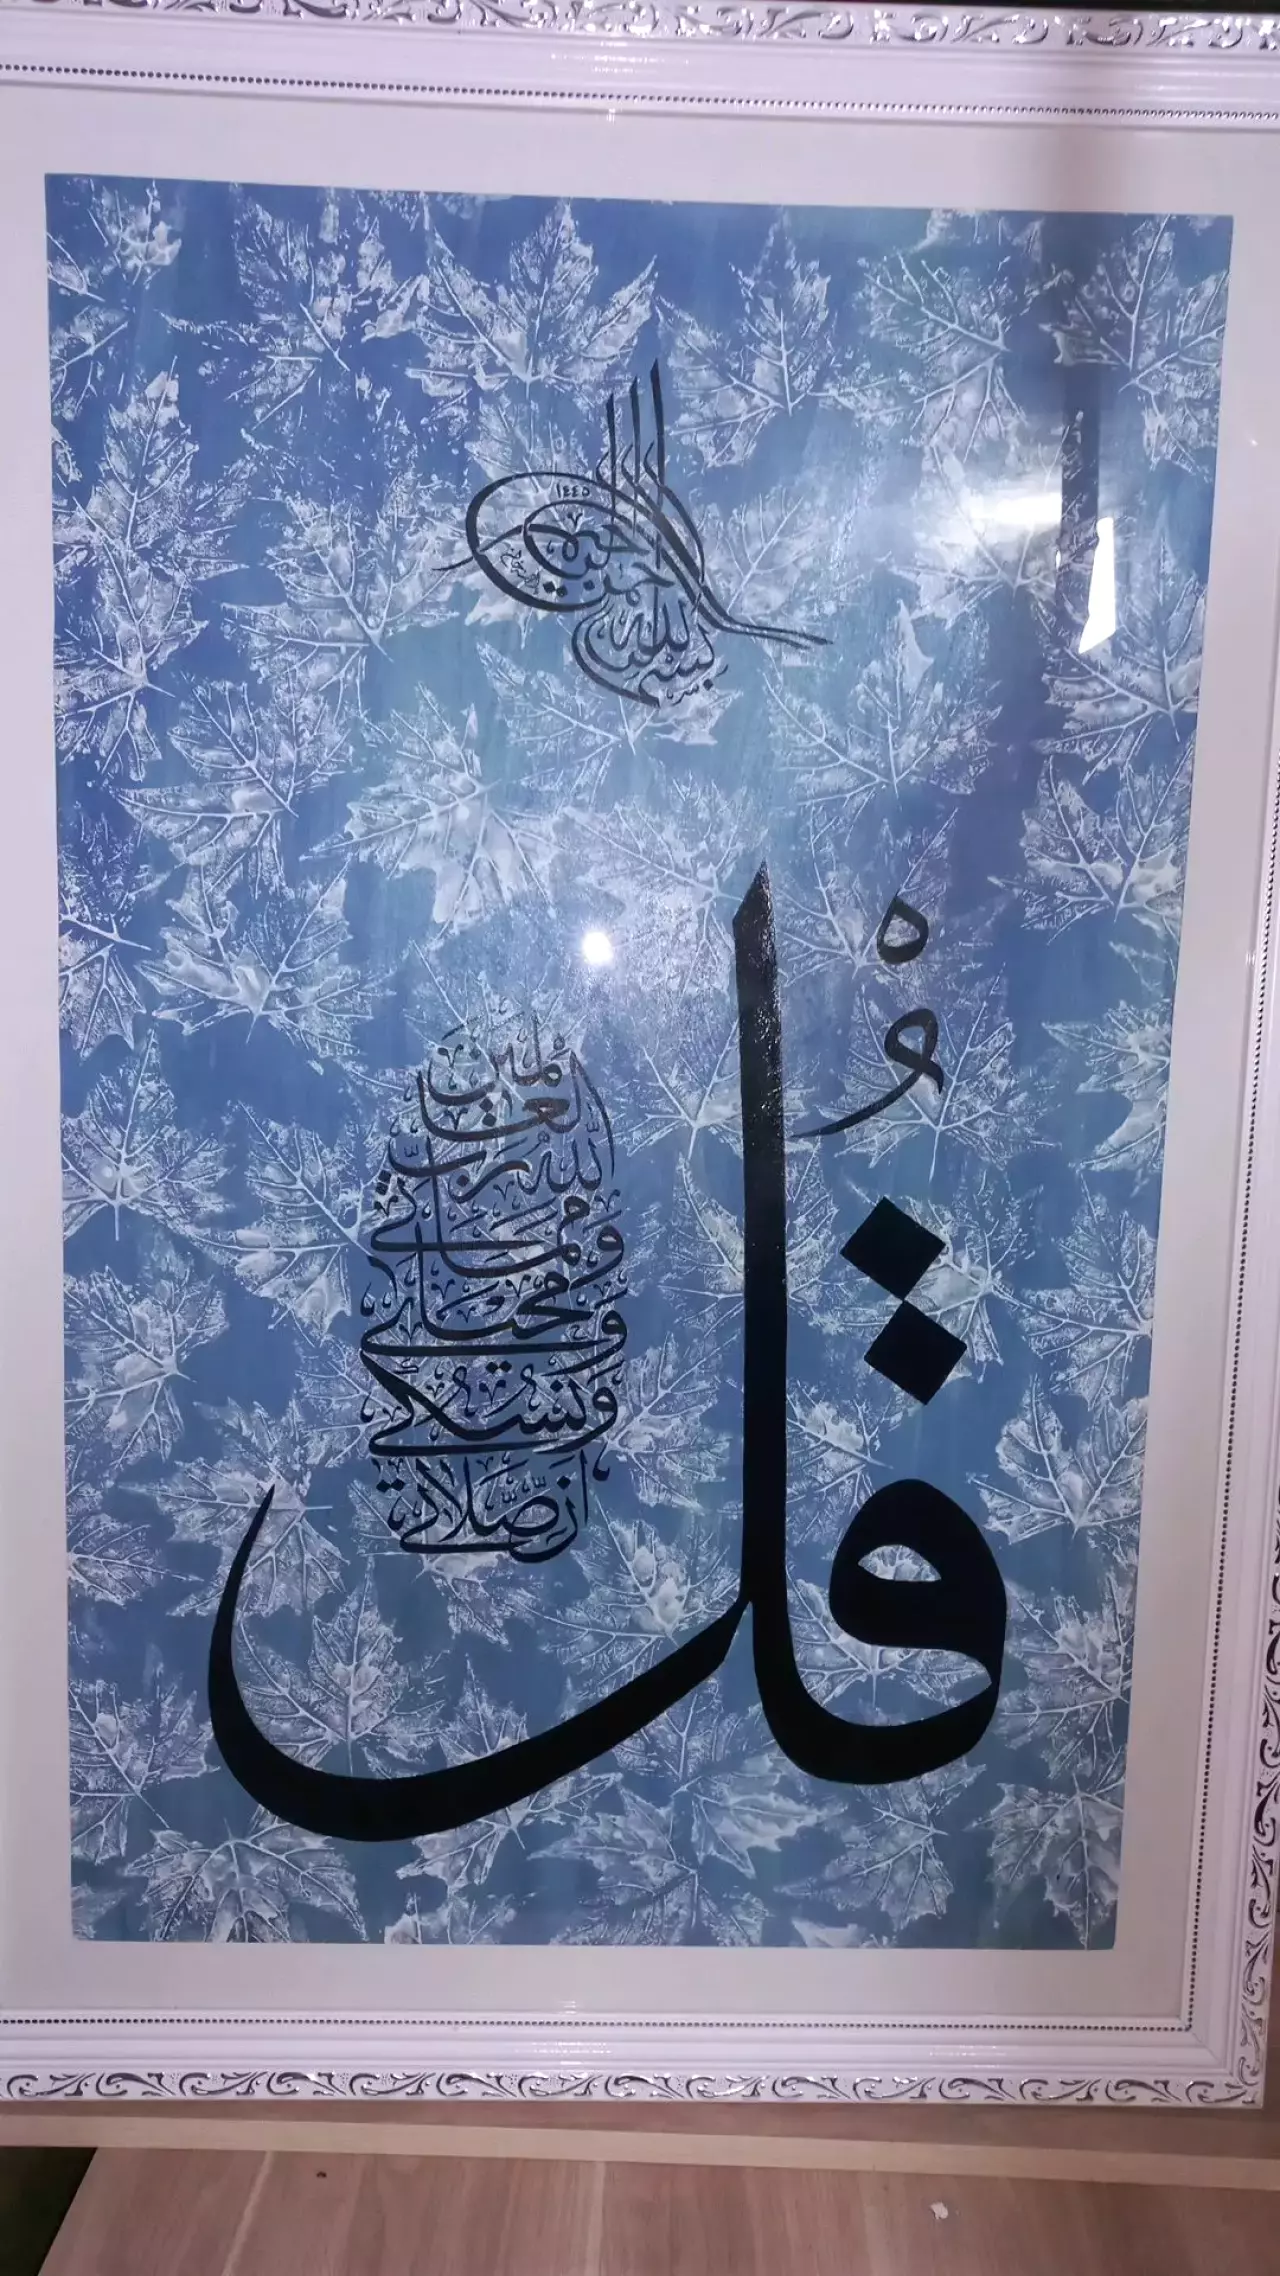 بسم الله الرحمن الرحيم
١٤٤٥
قُلْ
إنَّ صَلَاتي
وَنُسُكي
وَمحيَاي
وَمماتي
لله رَبِّ
العالمين